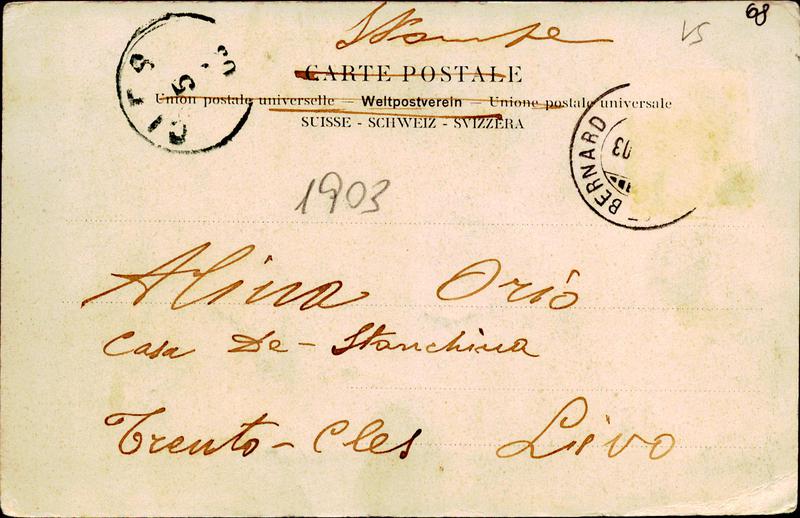 Stampe
VS
68
CARTE POSTALE
Union postale universelle — Weltpostverein — Unione postale universale
SUISSE - SCHWEIZ - SVIZZERA
CLES
5
03
BERNARD
03
1903
Alina Orió
Casa De-Stanchina
Trento-Cles Livo